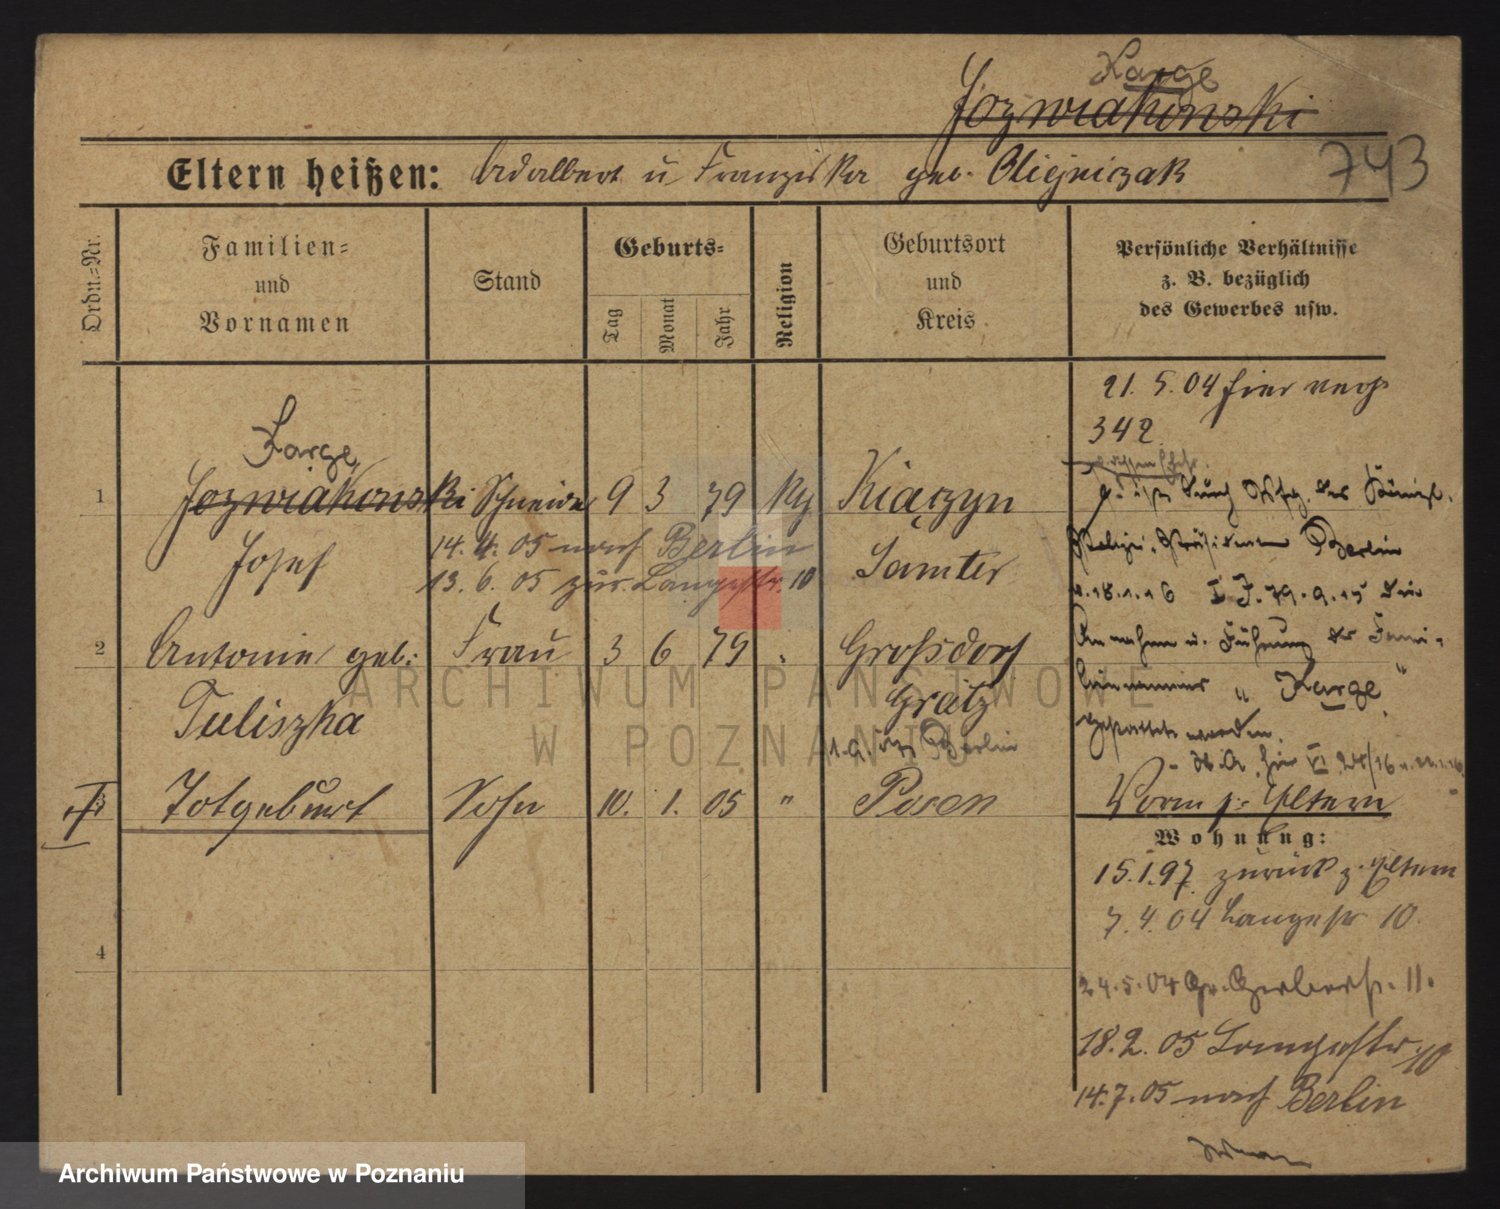 Karge
Jozwiakowski
Eltern heißen: Adalbert u Franziska geb. Olejniczak
743
Ordn.=Nr.
Familien=
und
Vornamen
Stand
Geburts=
Tag
Monat
Jahr
Religion
Geburtsort
und
Kreis
Persönliche Verhältnisse
z. B. bezüglich
des Gewerbes usw.
21. 5. 04 hier
342
Karge
1 Jozwiakowski Schneider 9 3 79 Kiączyn
Josef
14. 4. 05 nach Berlin
13. 6. 05 zur. Langestr. 10
Samter
ist durch Vfg. des Königl.
Polizei. Präsidenten Berlin
v. 18.1.16 I J. 79. a. 15 die
Annahme u. Führung des Fami-
liennamens „Karge“
gestattet worden.
2 Antonie geb. Frau 3 6 79 Großdorf
Tuliszka
Grätz
Berlin
3 Totgeburt Sohn 10. 1. 05 " Posen
Eltern
Wohnung:
15.1.97 zurück z. Eltern
7. 4. 04 Langestr 10.
4
24. 5. 04 Gr. Gerberstr. 11.
18. 2. 05 Langestr. 10
14. 7. 05 nach Berlin
ARCHIWUM PAŃSTWOWE
W POZNANIU
Archiwum Państwowe w Poznaniu